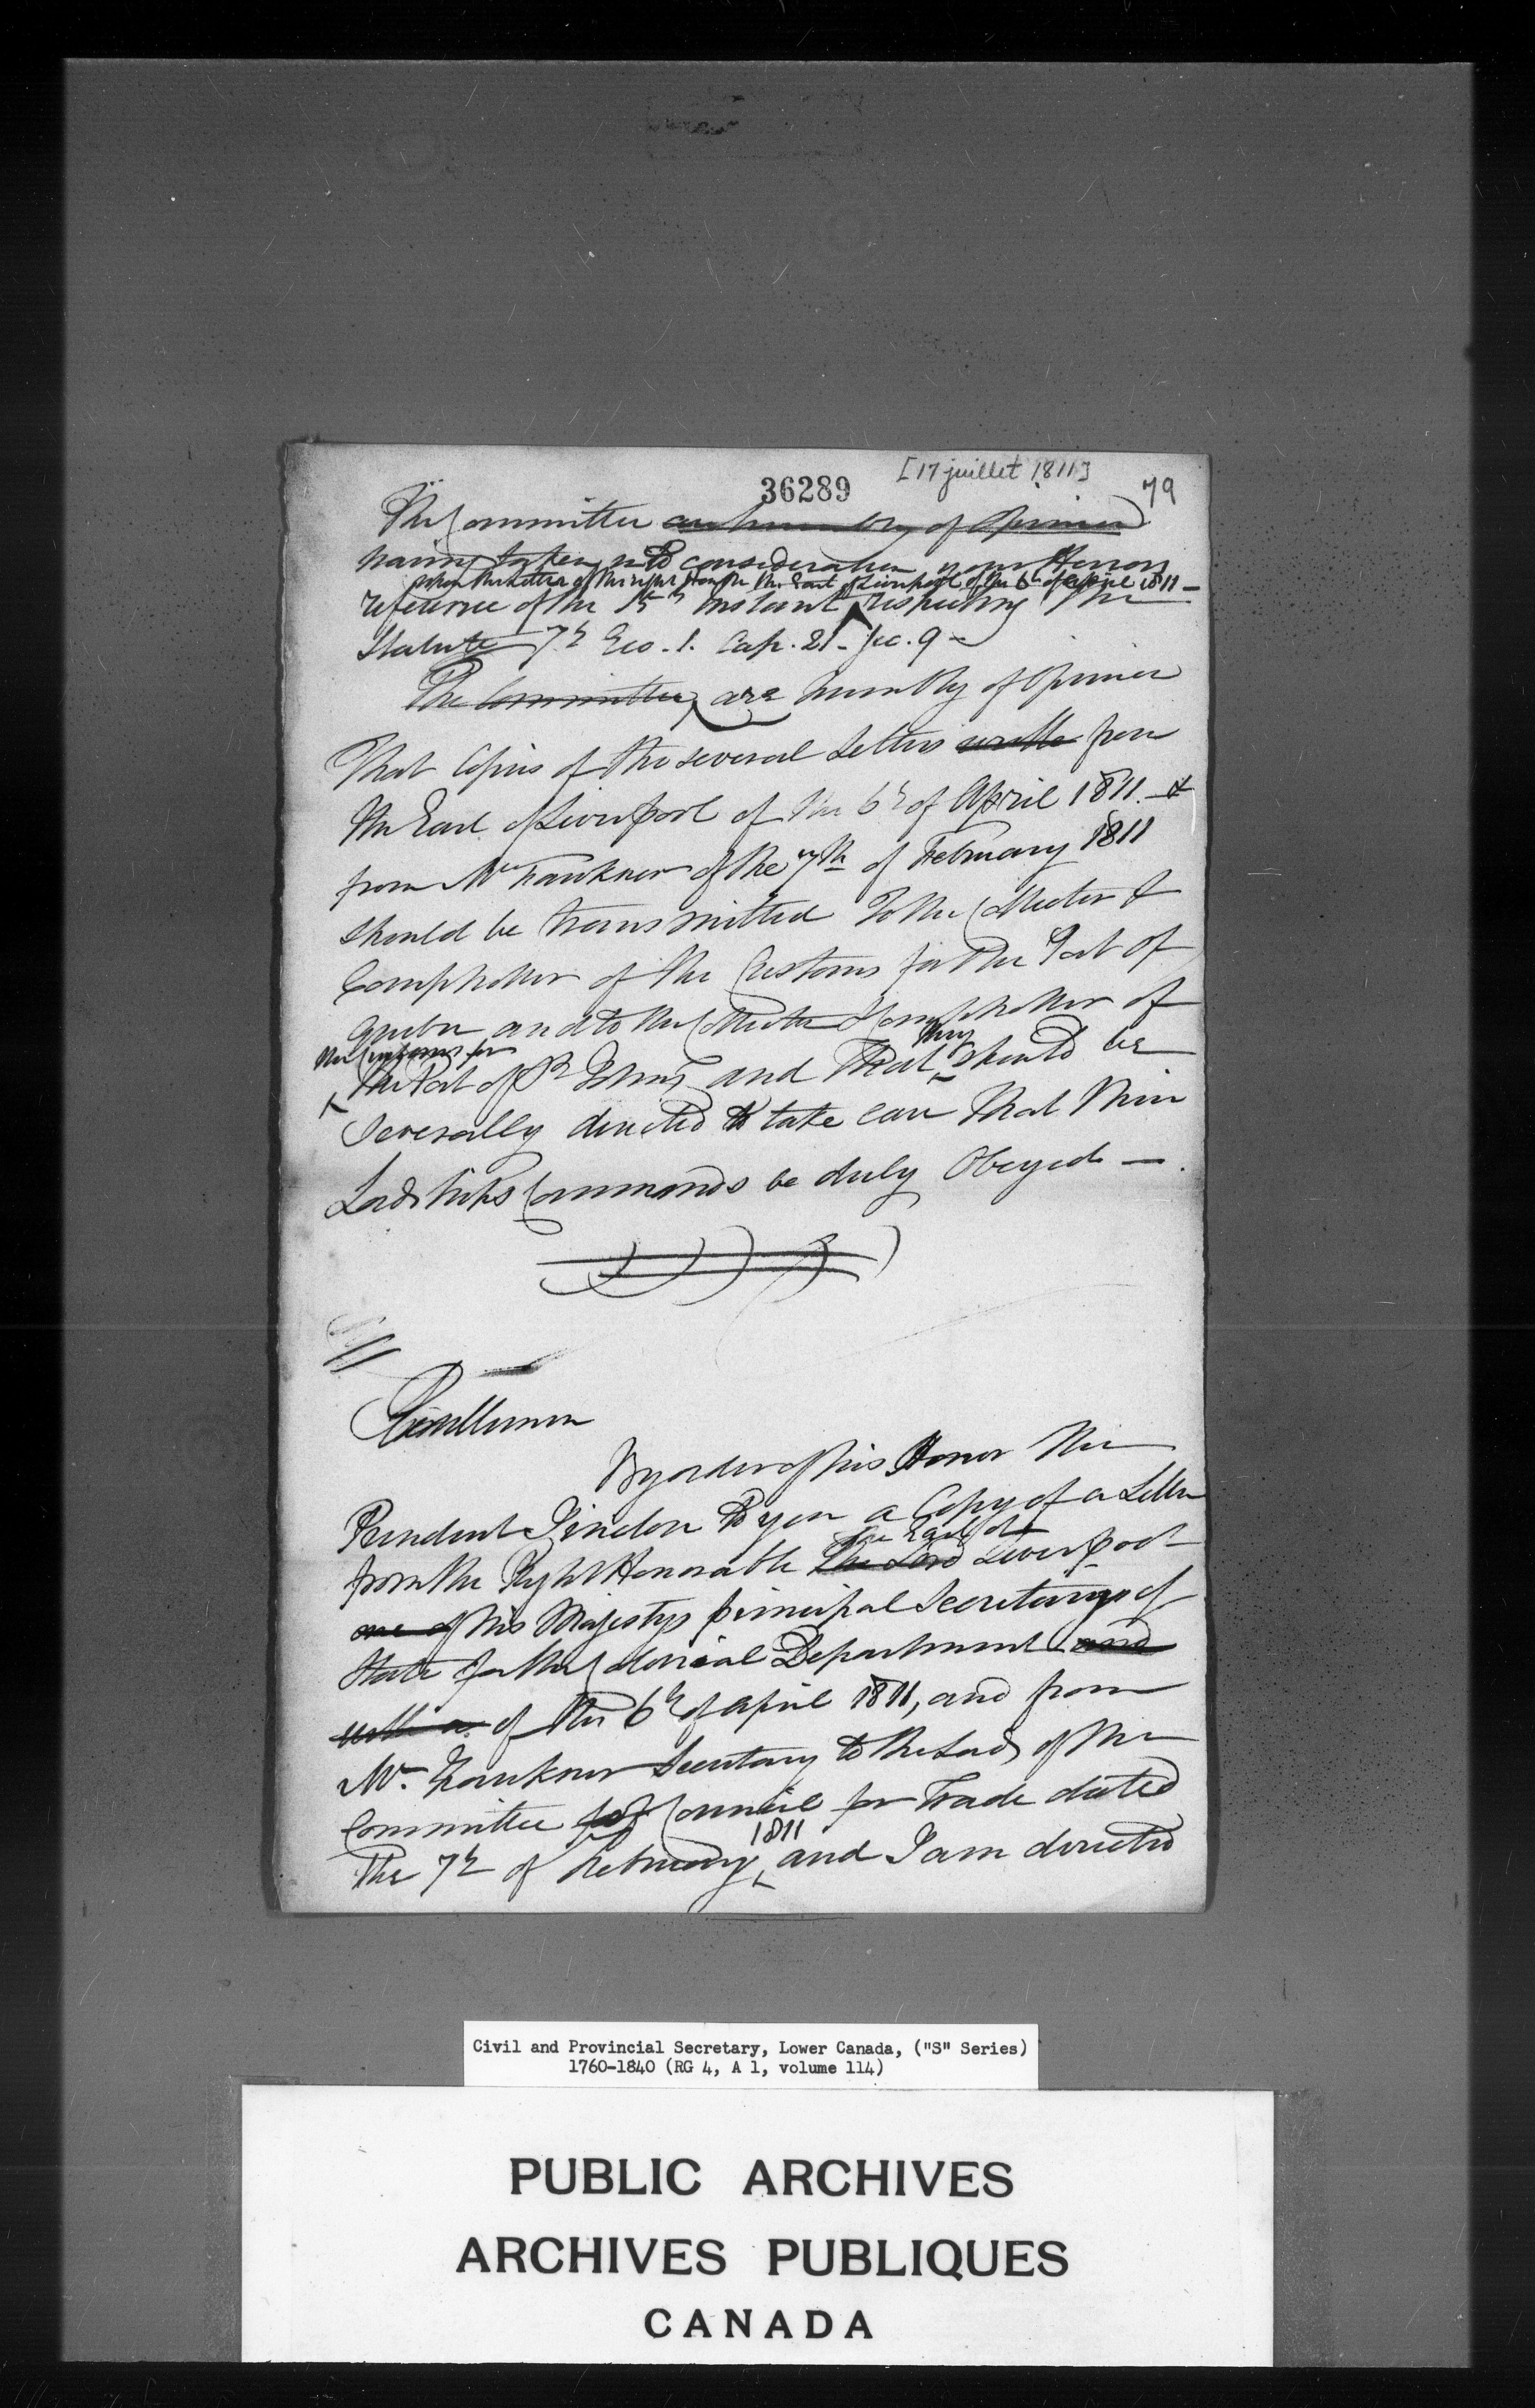 36289 [17 juillet 1811] 79
The Committee are humbly of Opinion
having taken into consideration your Honors
upon the letter of the right Honble the Earl of Liverpool of the 6th of April 1811 -
reference of the 15th instant respecting the
Statute 7th Geo. 1. Cap. 21 - Sec. 9 -
The Committee, are humbly of Opinion
That Copies of the several Letters from
the Earl of Liverpool of the 6th of April 1811. - &
from Mr Fawkner of the 7th of February 1811
should be transmitted to the Collector &
Comptroller of the Customs for the Port of
Quebec and to the Collector & Comptroller of
the Customs for
they
the Port of St Johns and that should be
Severally directed to take care that their
Lordships Commands be duly Obeyed -
Gentlemen
By order of his Honor the
President I inclose to you a Copy of a Letter
the Earl of
from the Right Honorable the Lord Liverpool
one of his Majestys principal Secretarys of
State for the Colonial Department and
with a of the 6th of April 1811, and from
Mr. Fawkner Secretary to the Lords of the
Committee of Council for Trade dated
1811
the 7th of February and I am directed
Civil and Provincial Secretary, Lower Canada, ("S" Series)
1760-1840 (RG 4, A 1, volume 114)
PUBLIC ARCHIVES
ARCHIVES PUBLIQUES
CANADA